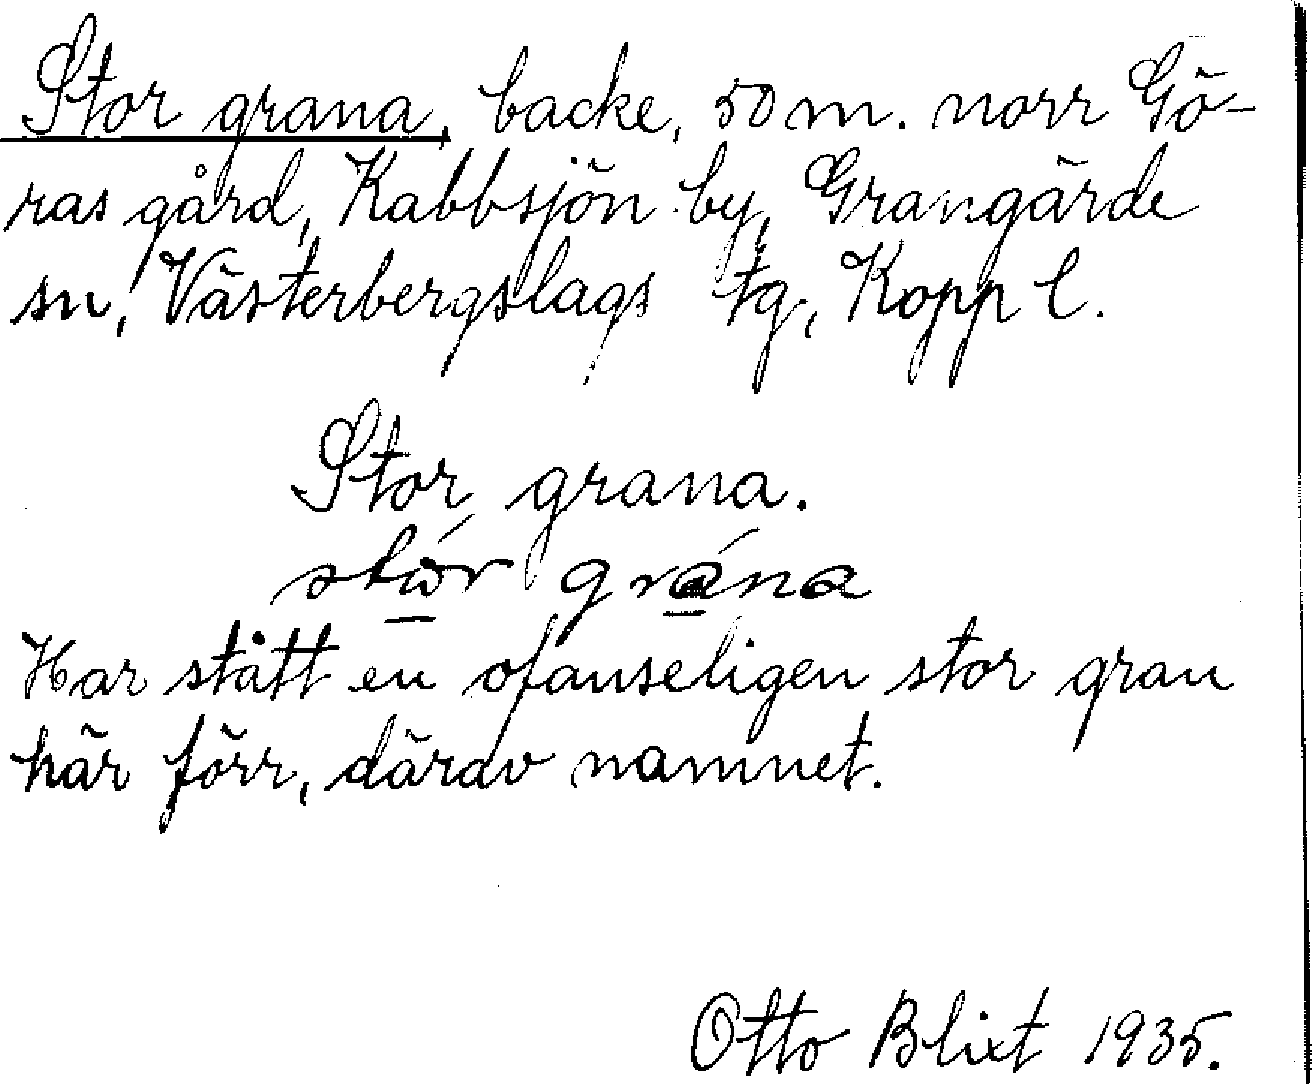 Stor grana, backe, 50 m. norr Gö-
ras gård, Kabbsjön by, Grangärde
sn, Västerbergslags tg, Kopp l.
Stor grana.
stór grána
Har stått en ofanseligen stor gran
här förr, därav namnet.
Otto Blixt 1935.